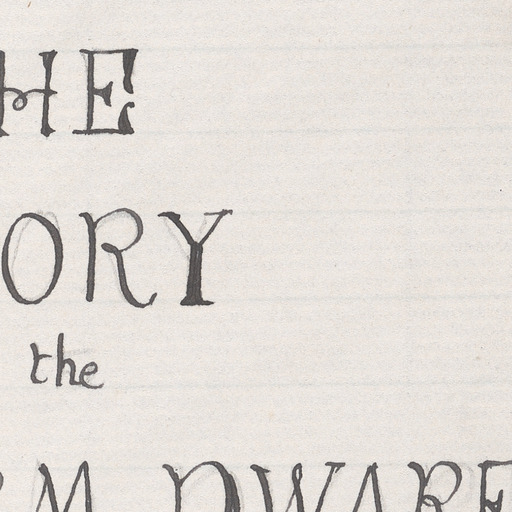 HE
ORY
the
RM DWARF